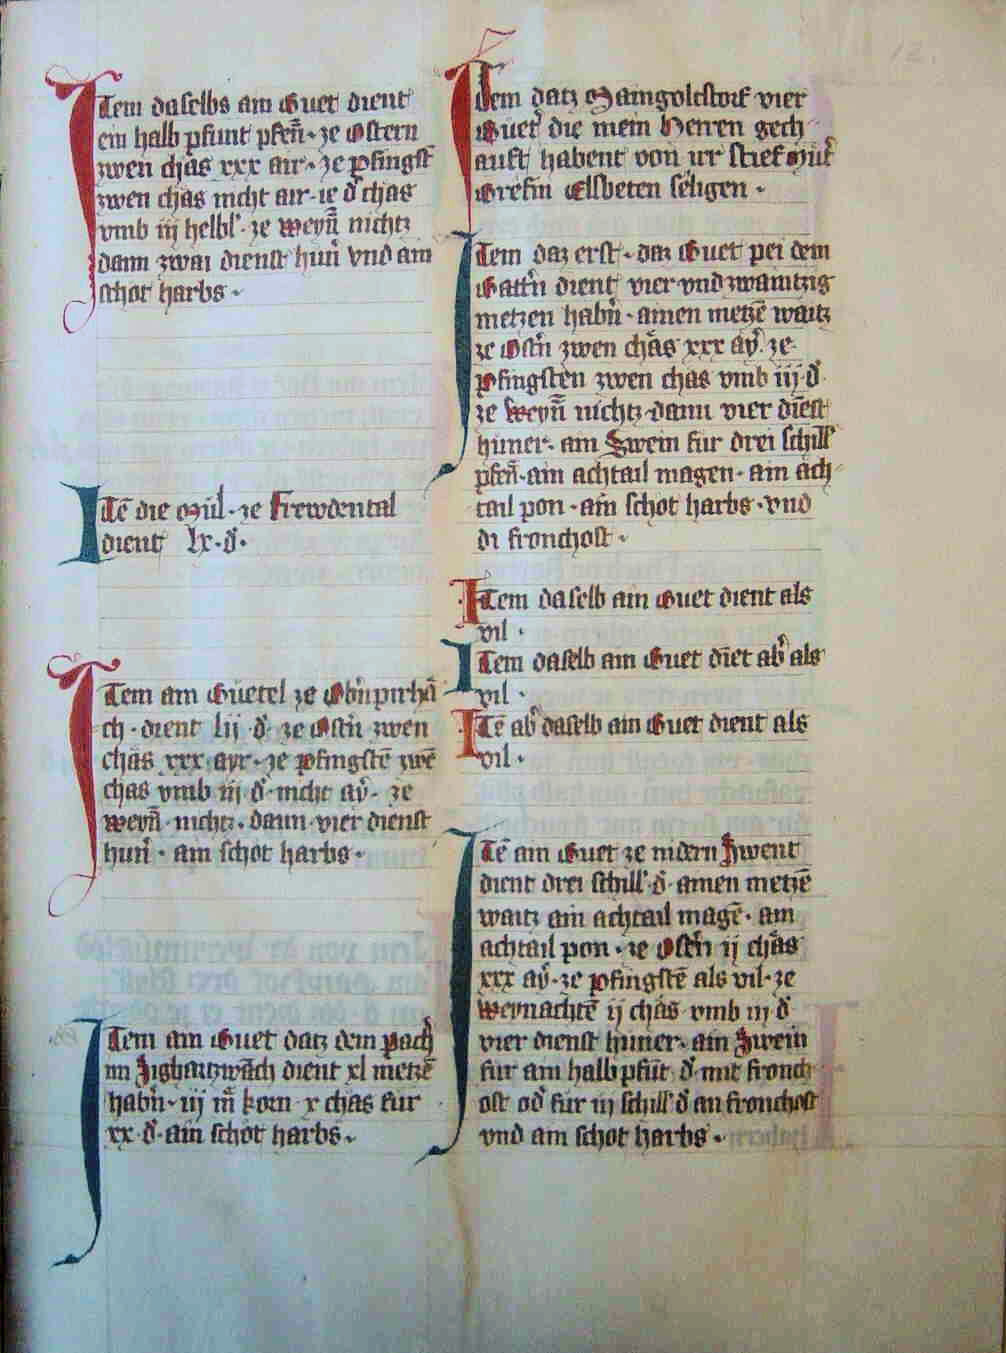 Item daselbs ain Guet dient
ein halb pfunt pfen̄ · ze Ostern
zwen chäs xxx air · ze Pfingst̄
zwen chäs nicht air · ie d̾ chäs
vmb iij helbl̾ · ze weyn̄ nichtz
dann zwai dienst hun̾ vnd ain
schot harbs ·
Itē die Mül · ze Frewdental
dient lx · d̾ ·
Item ain Güetel ze Obn̾pirhā
ch · dient lij · d̾ · ze Ostn̾ zwen
chäs xxx · ayr · ze Pfingstē zwē
chäs vmb iij · d̾ · nicht ay̾ · ze
weyn̄ · nichtz · dann · vier dienst
hun̾ · ain schot harbs ·
Item ain Guet datz dem pach
im dient xl metzē
habn̾ · iij m̄ korn · x chäs fur
xx · d̾ · ain schot harbs ·
12.
Item datz Maingoltstorf vier
Guet̾ die mein Herren gech
auft habent von ir stief Müt̾
Grefin Elsbeten seligen ·
Item daz erst · daz Guet pei dem
Gattn̾ dient vier vnd zwaintzig
metzen habn̾ · ainen metzē waitz
ze Ostn̾ zwen chäs xxx ay̾ · ze
Pfingsten zwen chäs vmb iij · d̾ ·
ze Weyn̄ nichtz · dann vier diēst
hüner · ain Swein für drei schill̾
pfen̄ · ain achtail magen · ain ach
tail pon · ain schot harbs · vnd
di fronchost ·
Item daselb ain Guet dient als
vil ·
Item daselb ain Guet diet ab̾ als
vil ·
Itē ab̾ daselb ain Guet dient als
vil ·
Itē ain Guet ze nidern
dient drei schill̾ · d̾ · ainen metzē
waitz ain achtail magē · ain
achtail pon · ze Ostn̾ ij chäs
xxx ay̾ · ze Pfingstē als vil · ze
weynachtē ij chäs · vmb iij d̾
vier dienst hüner · ain Swein
für ain halb pfūt · d̾ · mit fronch
ost od̾ fur iij schill̾ d̾ an fronchost
vnd ain schot harbs ·